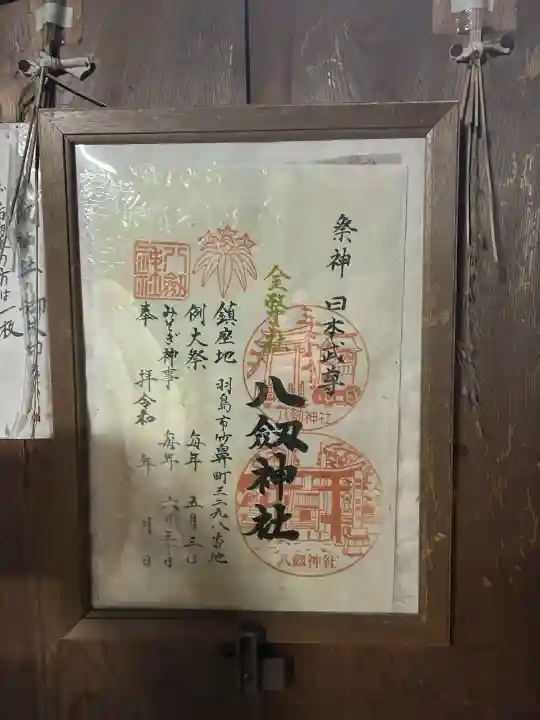 祭神 日本武尊
金幣社
八劔神社
鎮座地 羽島市竹鼻町三二九八番地
例大祭 毎年 五月三日
みそぎ神事 毎年 六月三十日
奉拝 令和 年 月 日
八劔神社
八劔神社
八劔神社
方は一枚